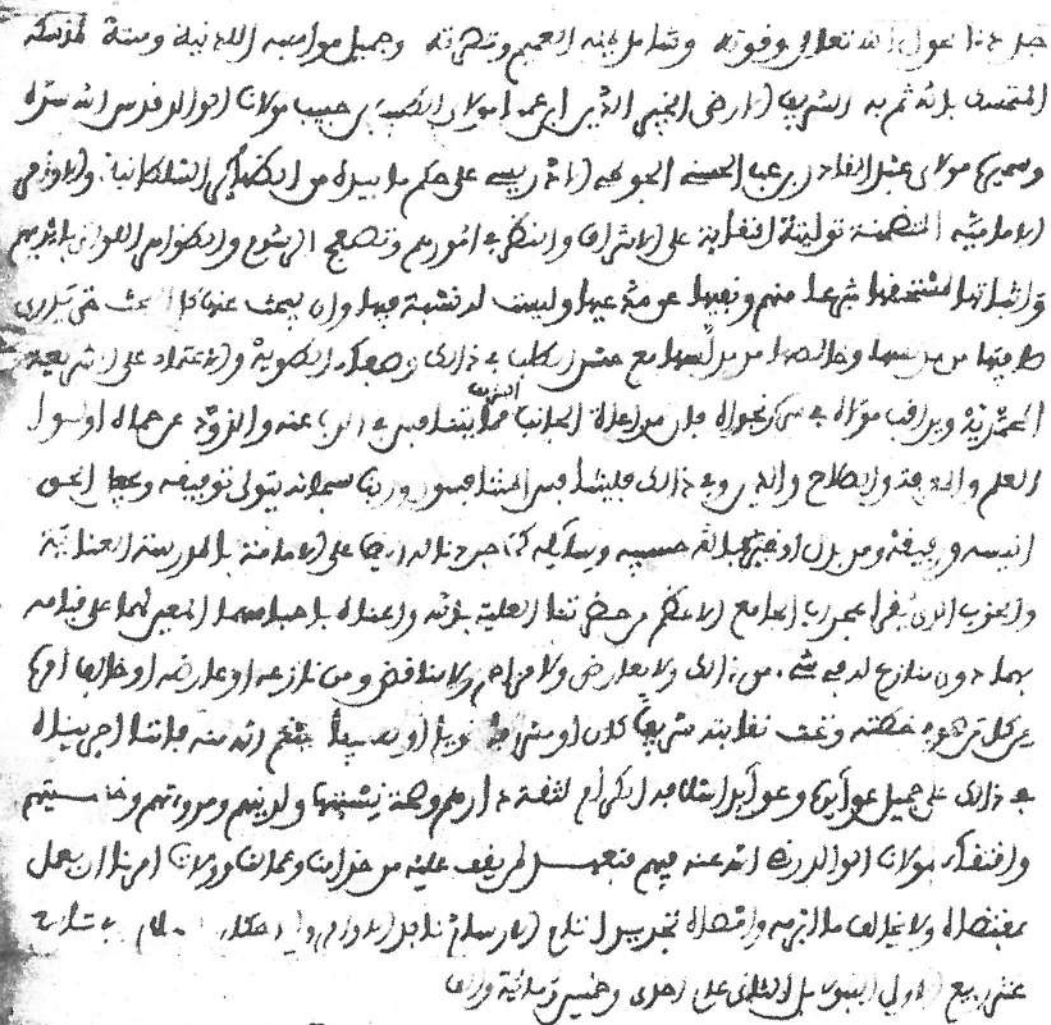 جددنا بحول الله تعالى وقوته وشامل يمنه العميم وجميل مواهبه اللدنية ومنته لماسكه
المتمسك بالله ثم به الشريف الارضى الخير الدين ابن عمنا مولاي الطيب بن حبيب مولانا الوالد قدس الله سره
وسميره مولاي عبد القادر بن عبد الحسني الجوطي الادريسي على حكم ما بيده من الظهائر السلطانية والاوامر
الامامية المتضمنة توليته النقابة على الاشراف والنظر في امورهم وتصفح الرسوم والظواهر اللواتي بايديهم
واثباتها لمستحقها شرعا منهم ونفيها عن مدعيها وليست له نسبة فيها وان يبحث عنها كل البحث حتى
طاقتها من وخالصها من مع حسن الطلب في ذالك وصفاء الطوية والاعتماد على الشريعة
المحمدية ويراقب مولاه في سره ونجواه فان مراعاة الجانب الشريف مما يتنافس في الذب عنه والذود عن حماه اولوا
العلم والمعرفة والصلاح والدين وفي ذالك فليتنافس المتنافسون وربنا سبحانه يتولى توفيقه ويجعل الحق
انيسه ورفيقه ومن بدل او غير فالله حسيبه وسائله كما جددنا له ايضا على الامامة بالمدرسة العنانية
والحزب الذي يقرا بمحراب الجامع الاعظم من حضرتنا العلية بالله واعناه باحباسهما المعين لهما على قيامه
بهما دون منازع له في شيء من ذالك ولا معارض ولا مزاحم ولا مناقض ومن نازعه او عارضه او خالف امره
من كل من هو في خطته وتحت نقابته شريفا كان او مشروفا قويا او ضعيفا ينتقم الله منه فاننا اجريناه
في ذالك على جميل عوايده وعوايد اسلافه الكرام لثقة دارهم وصحة نسبتها ولدينهم ومروءتهم وخاصيتهم
واقتفاء مولانا الوالد رضي الله عنه فيهم فنعهد لمن يقف عليه من خدامنا وعمالنا وولاة امرنا ان يعمل
بمقتضاه ولا يخالف ما ابرمه وامضاه تجديدا تاما نافذ الاوامر والاحكام والسلام في ثالث
عشر ربيع الاول النبوي عام احدى وخمسين ومائة والف